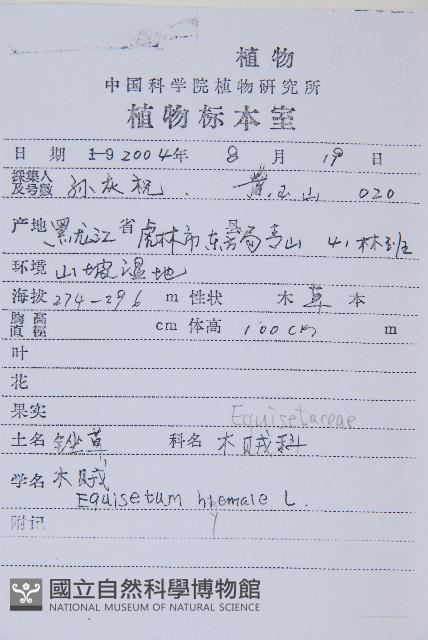 植物
中国科学院植物研究所
植物标本室
日 期 192004年 8 月 19 日
採集人及号数 孙灰祝. 黄玉山 020
产地 黑龙江省虎林市东方局县青山 41林班
环境 山坡湿地
海拔 274-296 m 性状 木草本
胸高直徑 cm 体高 100cm m
叶
花
果实 Equisetaceae
土名 锉草 科名 木贼科
学名 木贼
Equisetum hyemale L.
附记
國立自然科學博物館
NATIONAL MUSEUM OF NATURAL SCIENCE